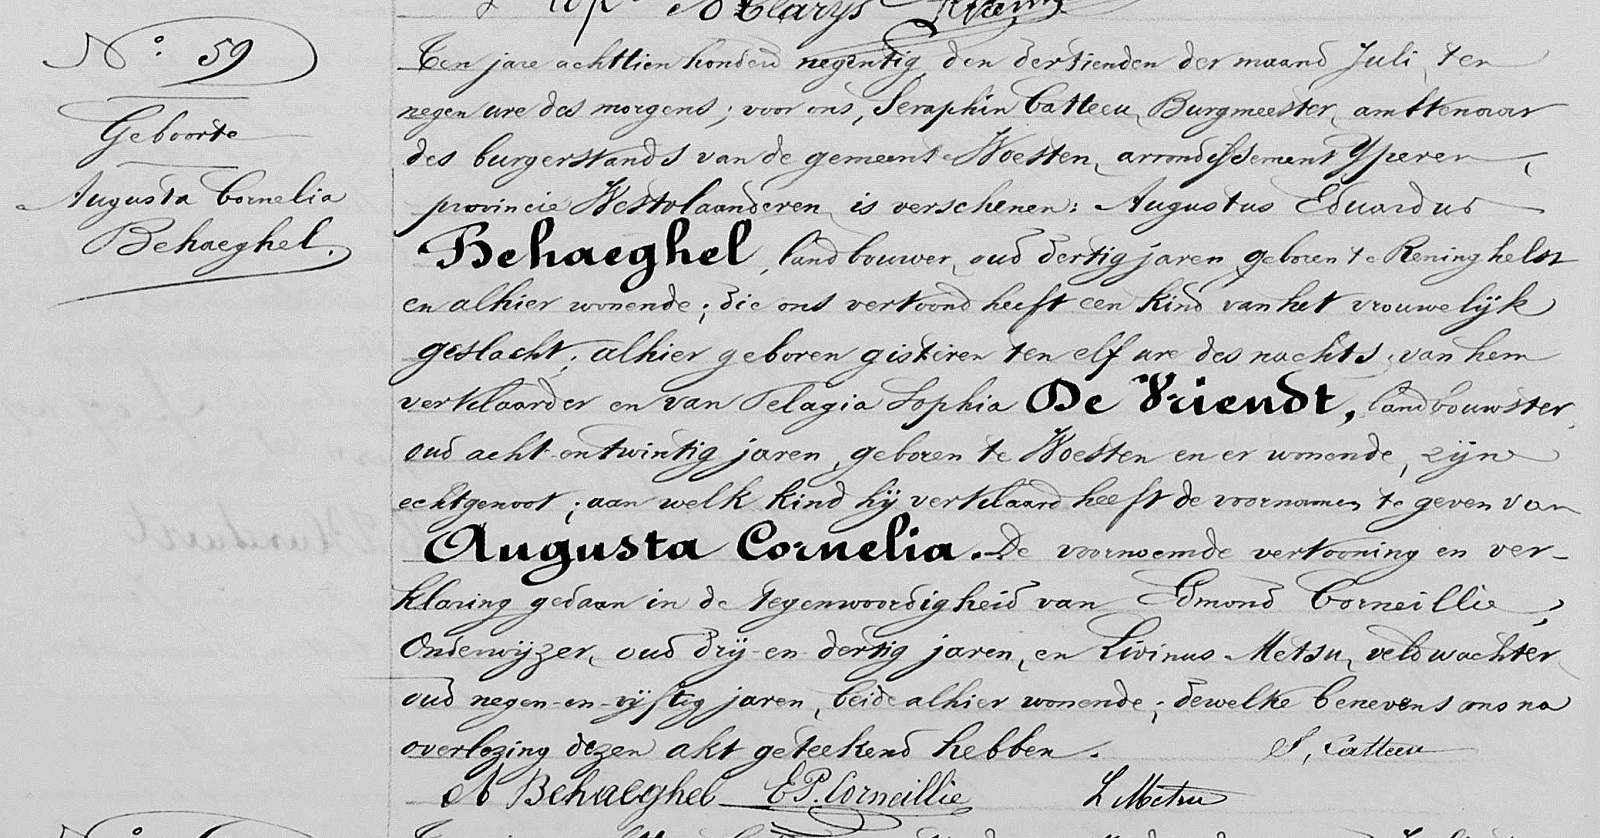 A Clarys
N° 59
Geboorte
Augusta Cornelia
Behaeghel.
Ten jare achttien honderd negentig den dertienden der maand Juli, ten
negen ure des morgens; voor ons, Seraphin Catteeu, Burgmeester, ambtenaar
des burgerstands van de gemeente Woesten, arrondissement Yperen,
provincie Westvlaanderen is verschenen: Augustus Eduardus
Behaeghel, landbouwer, oud dertig jaren geboren te Reninghelst
en alhier wonende; die ons vertoond heeft een kind van het vrouwelijk
geslacht, alhier geboren gisteren ten elf ure des nachts, van hem
verklaarder en van Pelagia Sophia De Vriendt, landbouwster,
oud acht-en-twintig jaren, geboren te Woesten en er wonende, zijne
echtgenoot; aan welk kind hij verklaard heeft de voornamen te geven van
Augusta Cornelia. De voornoemde vertooning en ver-
klaring gedaan in de tegenwoordigheid van Edmond Corneillie,
Onderwijzer, oud drij-en-dertig jaren, en Livinus Metsu, veldwachter
oud negen-en-vijftig jaren, beide alhier wonende; dewelke benevens ons na
overlezing dezen akt geteekend hebben.
S. Catteeu
A Behaeghel E P. Corneillie L Metsu
N°